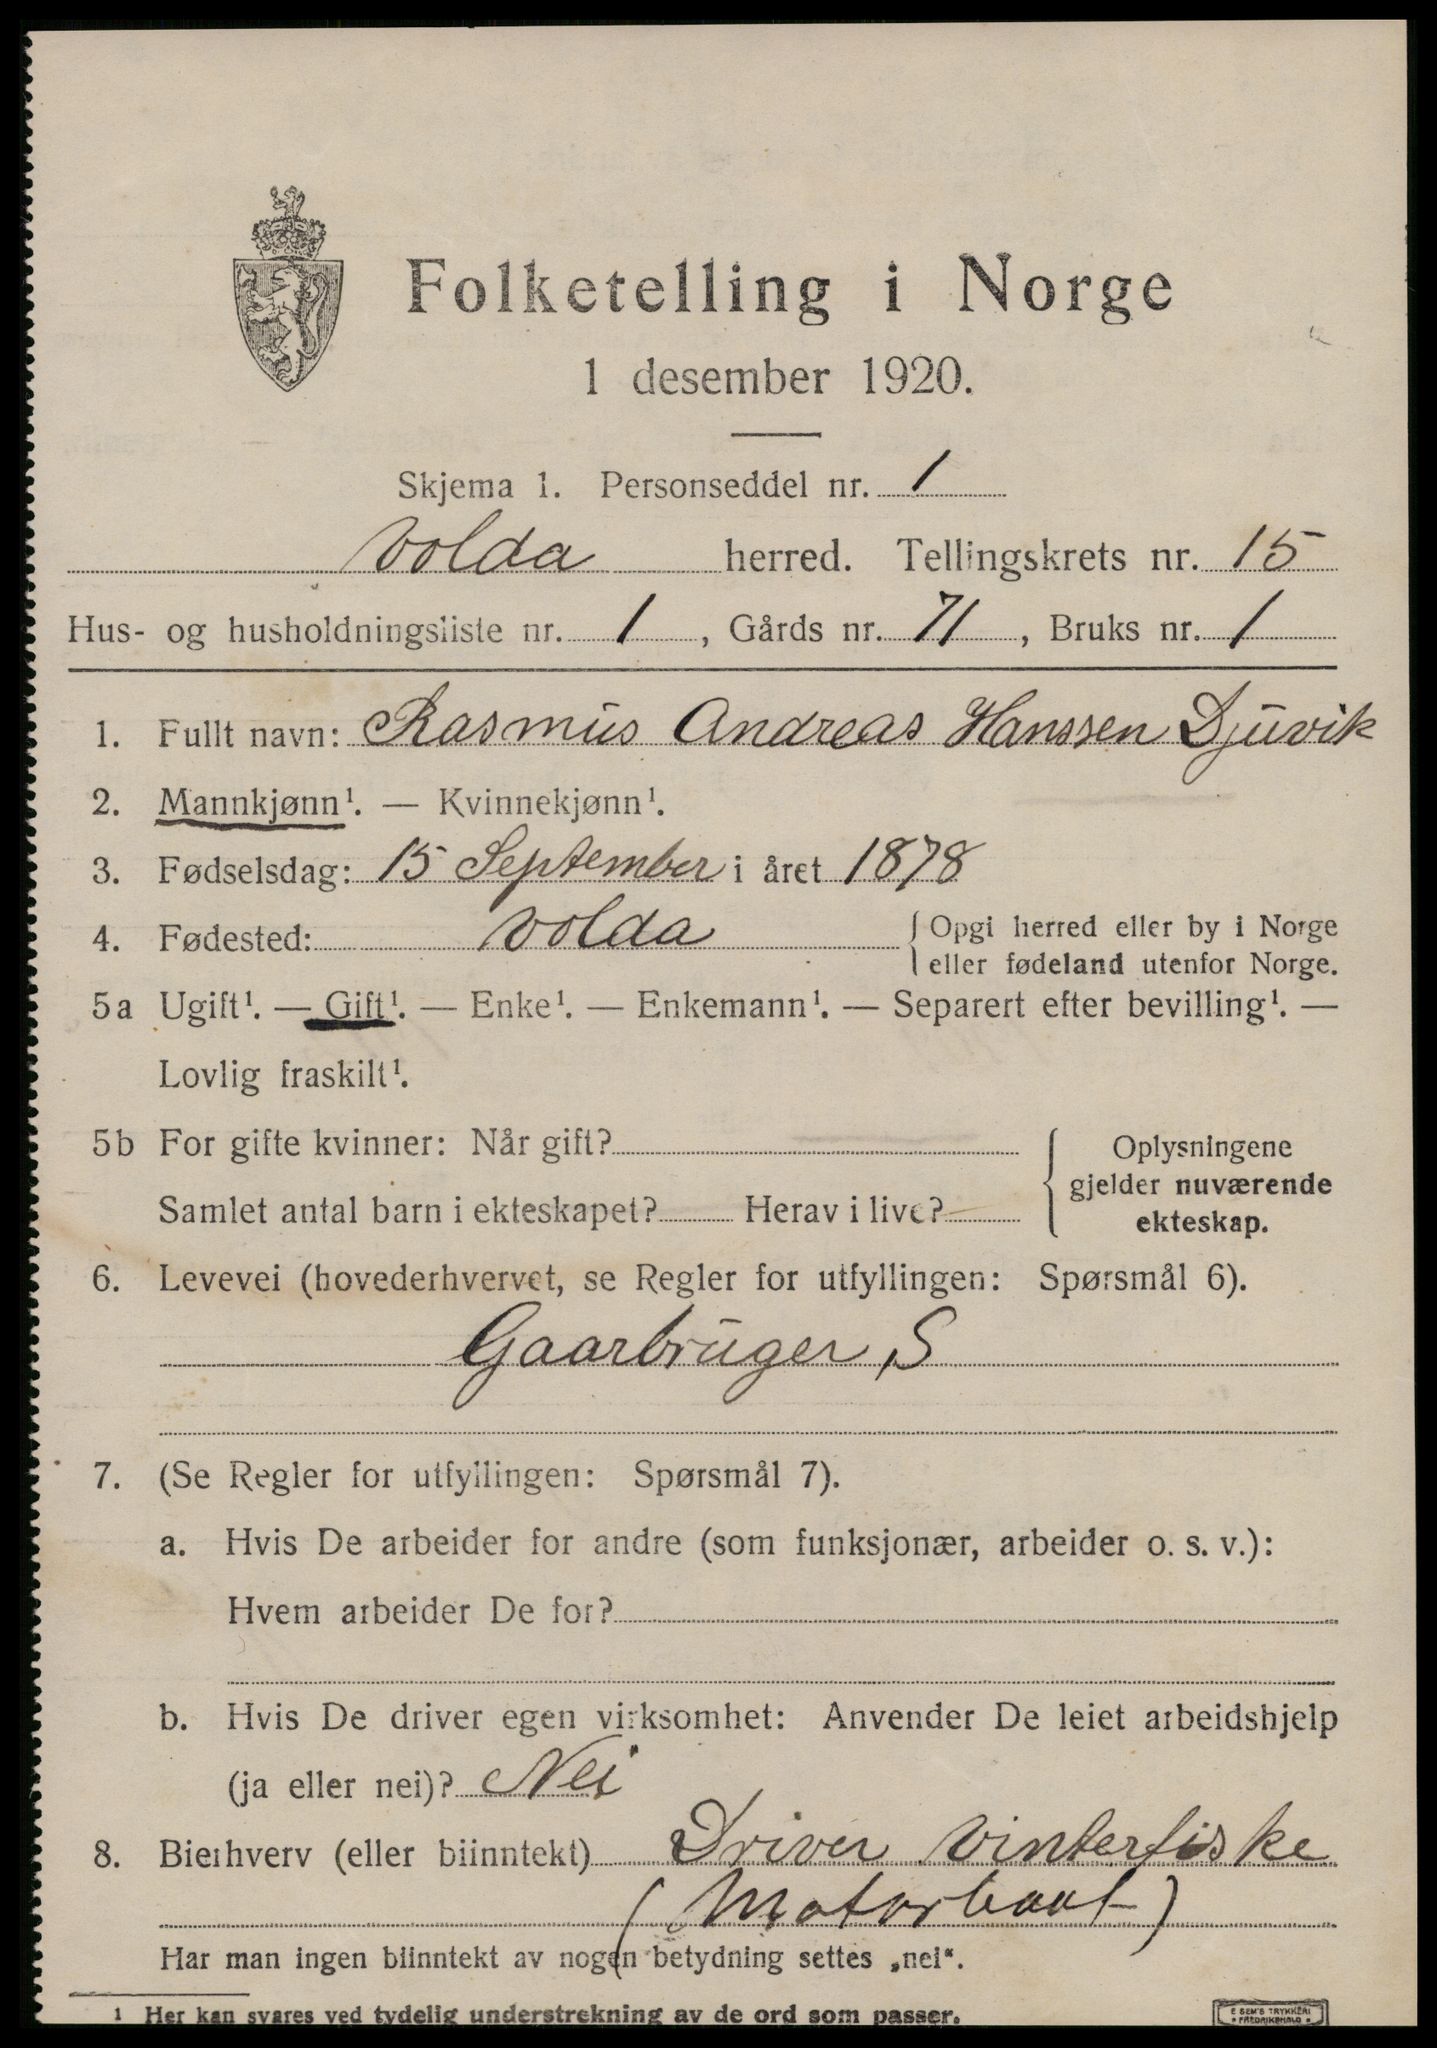 Folketelling i Norge
1 desember 1920.
Skjema 1. Personseddel nr. 1
Volda herred. Tellingskrets nr. 15
Hus- og husholdningsliste nr. 1, Gårds nr. 71, Bruks nr. 1
1. Fullt navn: Rasmus Andreas Hanssen Djuvik
2. Mannkjønn¹. — Kvinnekjønn¹.
3. Fødselsdag: 15 September i året 1878
4. Fødested: Volda { Opgi herred eller by i Norge
eller fødeland utenfor Norge.
5a Ugift¹. — Gift¹. — Enke¹. — Enkemann¹. — Separert efter bevilling¹. —
Lovlig fraskilt¹.
5b For gifte kvinner: Når gift?
Samlet antal barn i ekteskapet? Herav i live?
Oplysningene
gjelder nuværende
ekteskap.
6. Levevei (hovederhvervet, se Regler for utfyllingen: Spørsmål 6).
Gaarbruger, S
7. (Se Regler for utfyllingen: Spørsmål 7).
a. Hvis De arbeider for andre (som funksjonær, arbeider o. s. v.):
Hvem arbeider De for?
b. Hvis De driver egen virksomhet: Anvender De leiet arbeidshjelp
(ja eller nei)? Nei
8. Bierhverv (eller biinntekt) Driver Vinterfiske
(Motorbaat)
Har man ingen biinntekt av nogen betydning settes „nei“.
1 Her kan svares ved tydelig understrekning av de ord som passer.
E SEM'S TRYKKERI
FREDRIKSHALD